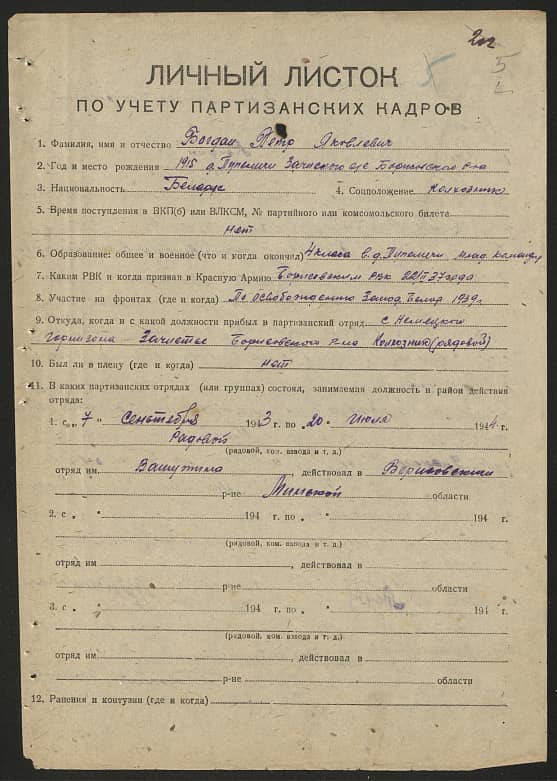 5
ЛИЧНЫЙ ЛИСТОК
ПО УЧЕТУ ПАРТИЗАНСКИХ КАДРОВ
1. Фамилия, имя и отчество Богдан Петр Яковлевич
2. Год и место рождения 1915 д. Пупеличи Зачистского с/с Борисовского р-на
3. Национальность Беларус 4. Соцположение Колхозник
5. Время поступления в ВКП(б) или ВЛКСМ, № партийного или комсомольского билета
нет
6. Образование: общее и военное (что и когда окончил) 4 класса в д. Пупеличи, млад. командир
7. Каким РВК и когда призван в Красную Армию Борисовским РВК 37 года
8. Участие на фронтах (где и когда) По освобождению Запад. Белор. 1939 г.
9. Откуда, когда и с какой должности прибыл в партизанский отряд с Немецкого
гарнизона Зачистье Борисовского р-на Колхозник (рядовой)
10. Был ли в плену (где и когда) нет
11. В каких партизанских отрядах (или группах) состоял, занимаемая должность и район действия
отряда:
1. с „7 “ Сентября 1943 г. по „20 “ Июля 1944 г.
Рядовой
(рядовой, ком. взвода и т. д.)
отряд им. Вашутина, действовал в Борисовском
р-не Минской области
2. с „ “ 194 г. по „ “ 194 г.
(рядовой, ком. взвода и т. д.)
отряд им., действовал в
р-не области
3. с „ “ 194 г. по „ “ 194 г.
(рядовой, ком. взвода и т. д.)
отряд им., действовал в
р-не области
12. Ранения и контузии (где и когда)